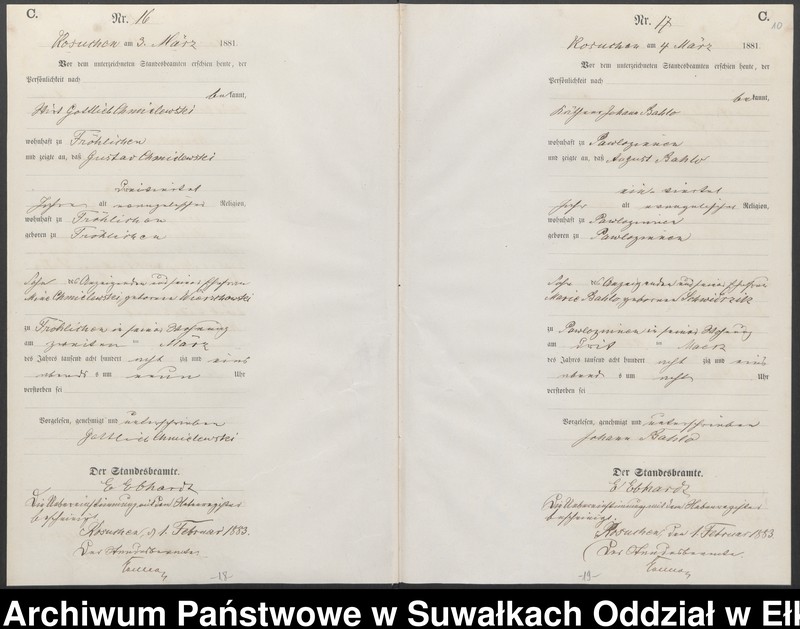 C.
Nr. 16
Kosuchen am 3. März 1881.
Vor dem unterzeichneten Standesbeamten erschien heute, der
Persönlichkeit nach
bekannt,
Wirt Gottlieb Chmielewski
wohnhaft zu Fröhlichen
und zeigte an, daß Gustav Chmielewski
dreiviertel
Jahre alt evangelischer Religion,
wohnhaft zu Fröhlichen
geboren zu Fröhlichen
Sohn des Anzeigenden und seiner Ehefrau
Chmielewski geborenen
zu Fröhlichen in seiner Wohnung
am zweiten März
des Jahres tausend acht hundert acht zig und eins
abends um neun Uhr
verstorben sei
Vorgelesen, genehmigt und unterschrieben
Gottlieb Chmielewski
Der Standesbeamte.
E Ebhardt
Die Uebereinstimmung mit dem Hauptregister
bescheinigt.
Kosuchen, d 1. Februar 1883.
Der Standesbeamte
-18-
Nr. 17
C.
10
Kosuchen am 4 März 1881
Vor dem unterzeichneten Standesbeamten erschien heute, der
Persönlichkeit nach
bekannt,
Johann Bahlo
wohnhaft zu Pawlozinnen
und zeigte an, daß August Bahlo
ein viertel
Jahr alt evangelischer Religion,
wohnhaft zu Pawlozinnen
geboren zu Pawlozinnen
Sohn des Anzeigenden und seiner Ehefrau
Marie Bahlo geborenen
zu Pawlozinnen in seiner Wohnung
am März
des Jahres tausend acht hundert acht zig und eins
abends um acht Uhr
verstorben sei
Vorgelesen, genehmigt und unterschrieben
Johann Bahlo
Der Standesbeamte.
E Ebhardt
Die Uebereinstimmung mit dem Hauptregister
bescheinigt.
Kosuchen, den 1. Februar 1883
Der Standesbeamte
-19-
Archiwum Państwowe w Suwałkach Oddział w Ełk